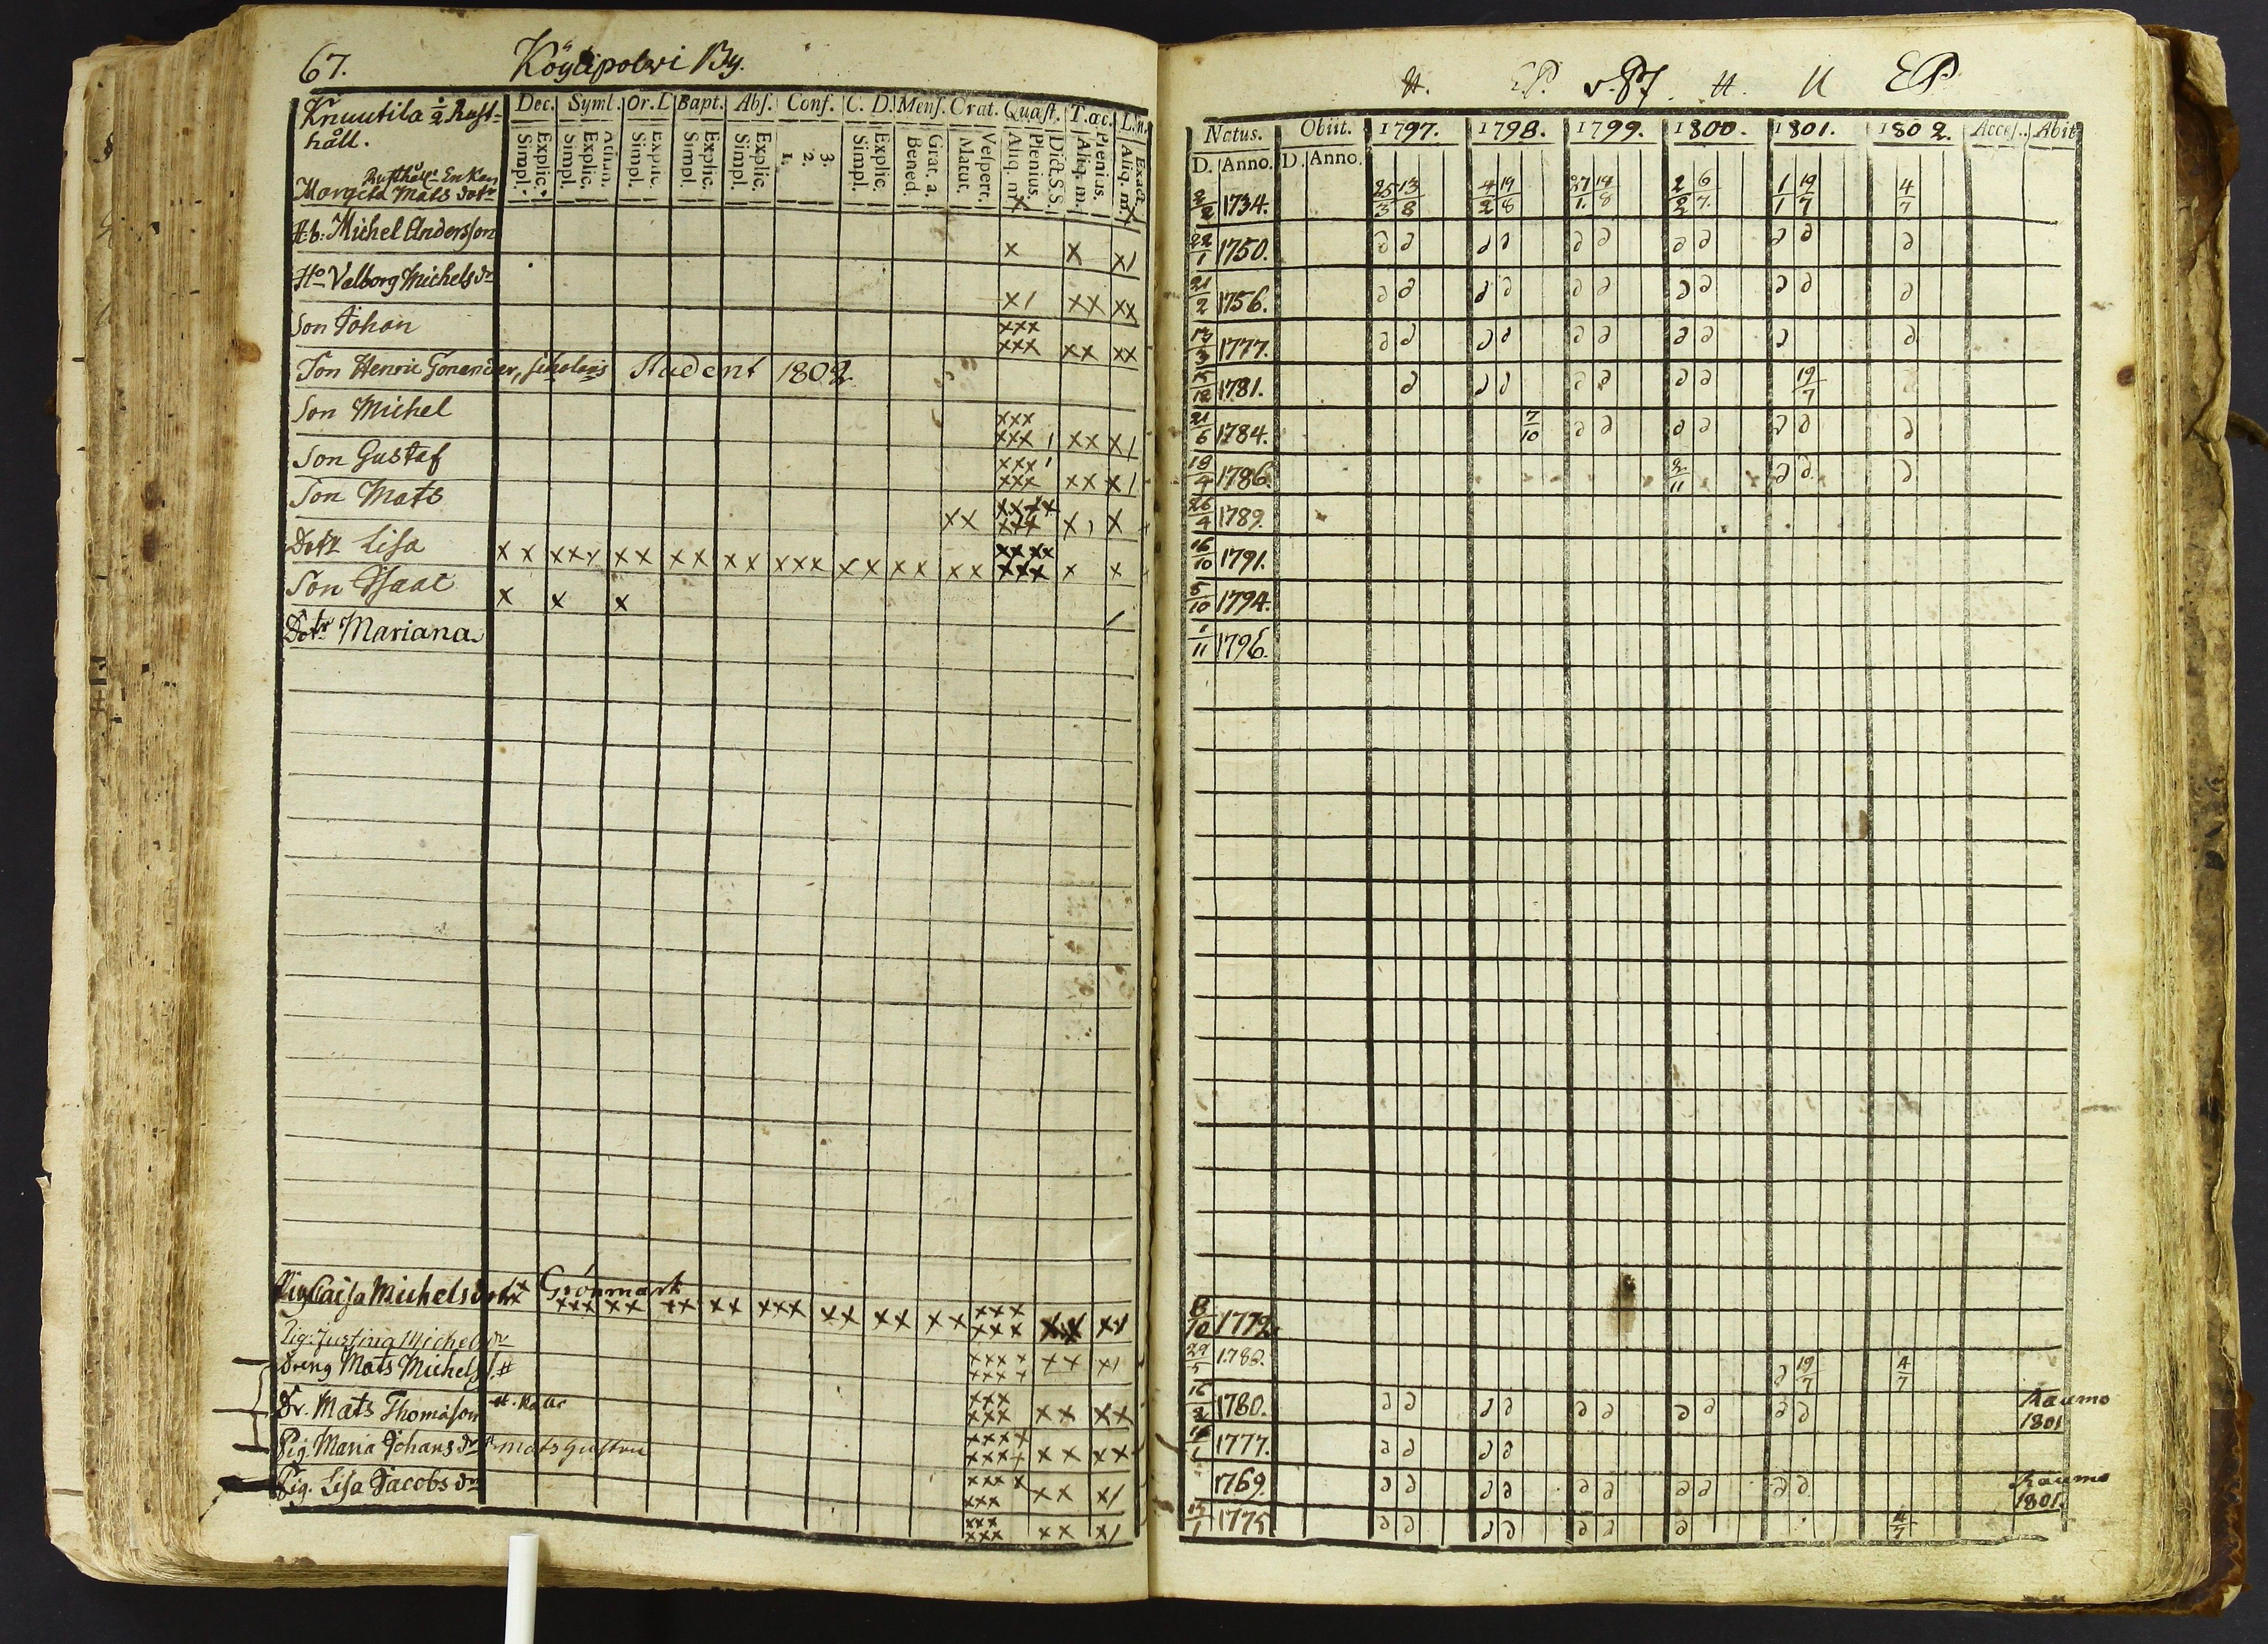 67. Köylipolwi By.
Knuutila ½ Rust-
håll.
Dec. Syml. Or. D Bapt. Abs. Conf. C. D. Mens. Orat. Quæst. T. œc. L. n.
Explic. Simpl. Athan. Explic. Simpl. Explic. Simpl. Explic. Simpl. Explic. Simpl. 3. 2. 1. Explic. Simpl. Grat. a. Bened. Vespert. Matut. Dict. S.S. Plenius. Aliq. m. Plenius. Aliq. m. Exacte. Aliq. m.
Rusthålls Enkan
Margeta Mats dotr x x
H:b: Michel Andersson x x x/
Ho Valborg Michelsdr x/ xx xx
Son Johan xxx xxx xx xx
Son Henric Student 1802
Son Michel xxx xxx / xx x/
Son Gustaf xxx / xxx xx x/
Son Mats xx xxxx xxx x, x
Dotr Lisa x x xxx xx xx xx xxx xx xx xx xxxx xxx x x
Son Isaac x x x /
Dotr Mariana
Pig Caisa Michelsdotr Grönmark xx xxx xx xx xx xxx xx xx xx xxx xxx xx xx
Pig: Justina Michelsdr xxxx xxxx xx x/
Dreng Mats Michelss. # xxx xxx xx xx
Dr. Mats Thomasson xxxx xxxx xx xx
Pig. Maria Johansdr Mats Hustru xxxx xxx xx x/
Pig. Lisa Jacobsdr xxx xxx xx x/
H. E.P. H. H EP.
Natus. Obiit. 1797. 1798. 1799. 1800. 1801. 1802. Acces. Abit
D. Anno. D. Anno.
2/2 1734. 25/3 13/8 4/2 19/8 27/1. 18/8 2/2 6/7. 1/1 19/7 4/7
22/1 1750. д д д д д д д д д д д
21/2 1756. д д д д д д д д д д д
12/3 1777. д д д д д д д д д д
15/12 1781. д д д д д д д 19/7
21/6 1784. 7/10 д д д д д д д
18/4 1786. 2/11 д д д
26/4 1789.
16/10 1791.
5/10 1794.
1/11 1796.
8/10 1772.
29/5 1783. д 19/7 4/7
16/2 1780. д д д д д д д д д д Raumo 1801
1777. д д д д
1769. д д д д д д д д д д Raumo 1801.
15/1 1775 д д д д д д д 4/7